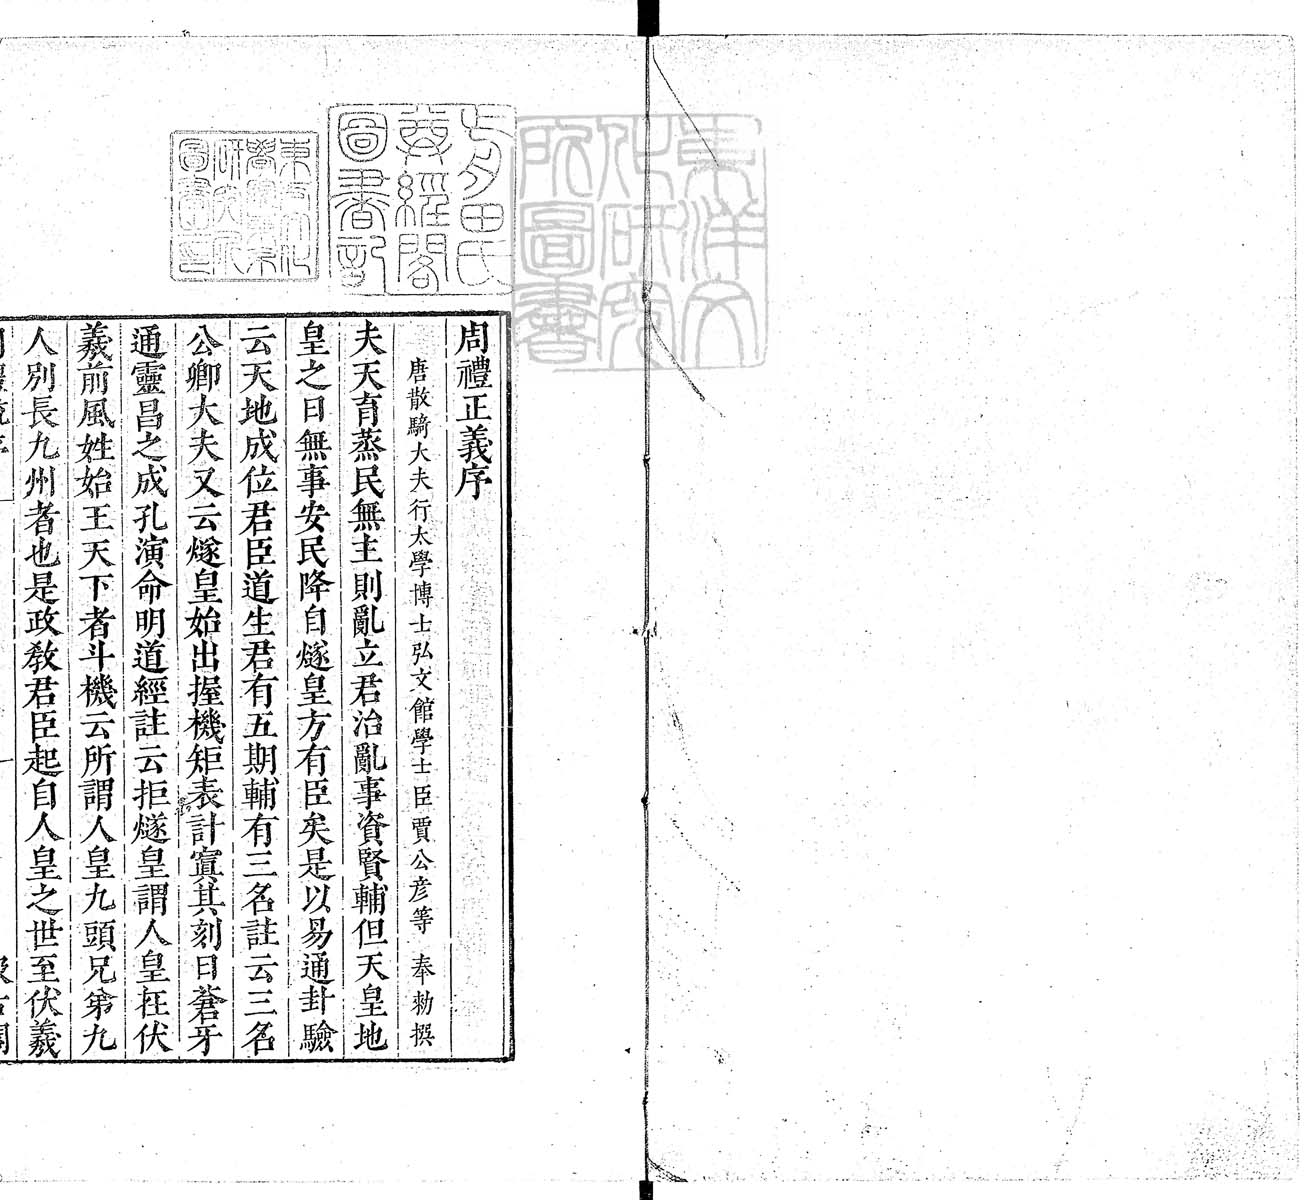 東洋文
化研究
所圖書
尊經閣
圖書記
東方文化
學院東京
研究所
圖書之印
周禮正義序
唐散騎大夫行太學博士弘文館學士臣賈公彥等 奉勑撰
夫天育蒸民無主則亂立君治亂事資賢輔但天皇地
皇之日無事安民降自燧皇方有臣矣是以易通卦驗
云天地成位君臣道生君有五期輔有三名註云三名
公卿大夫又云燧皇始出握機矩表計寘其刻曰蒼牙
通靈昌之成孔演命明道經註云拒燧皇謂人皇在伏
羲前風姓始王天下者斗機云所謂人皇九頭兄弟九
人別長九州者也是政敎君臣起自人皇之世至伏羲